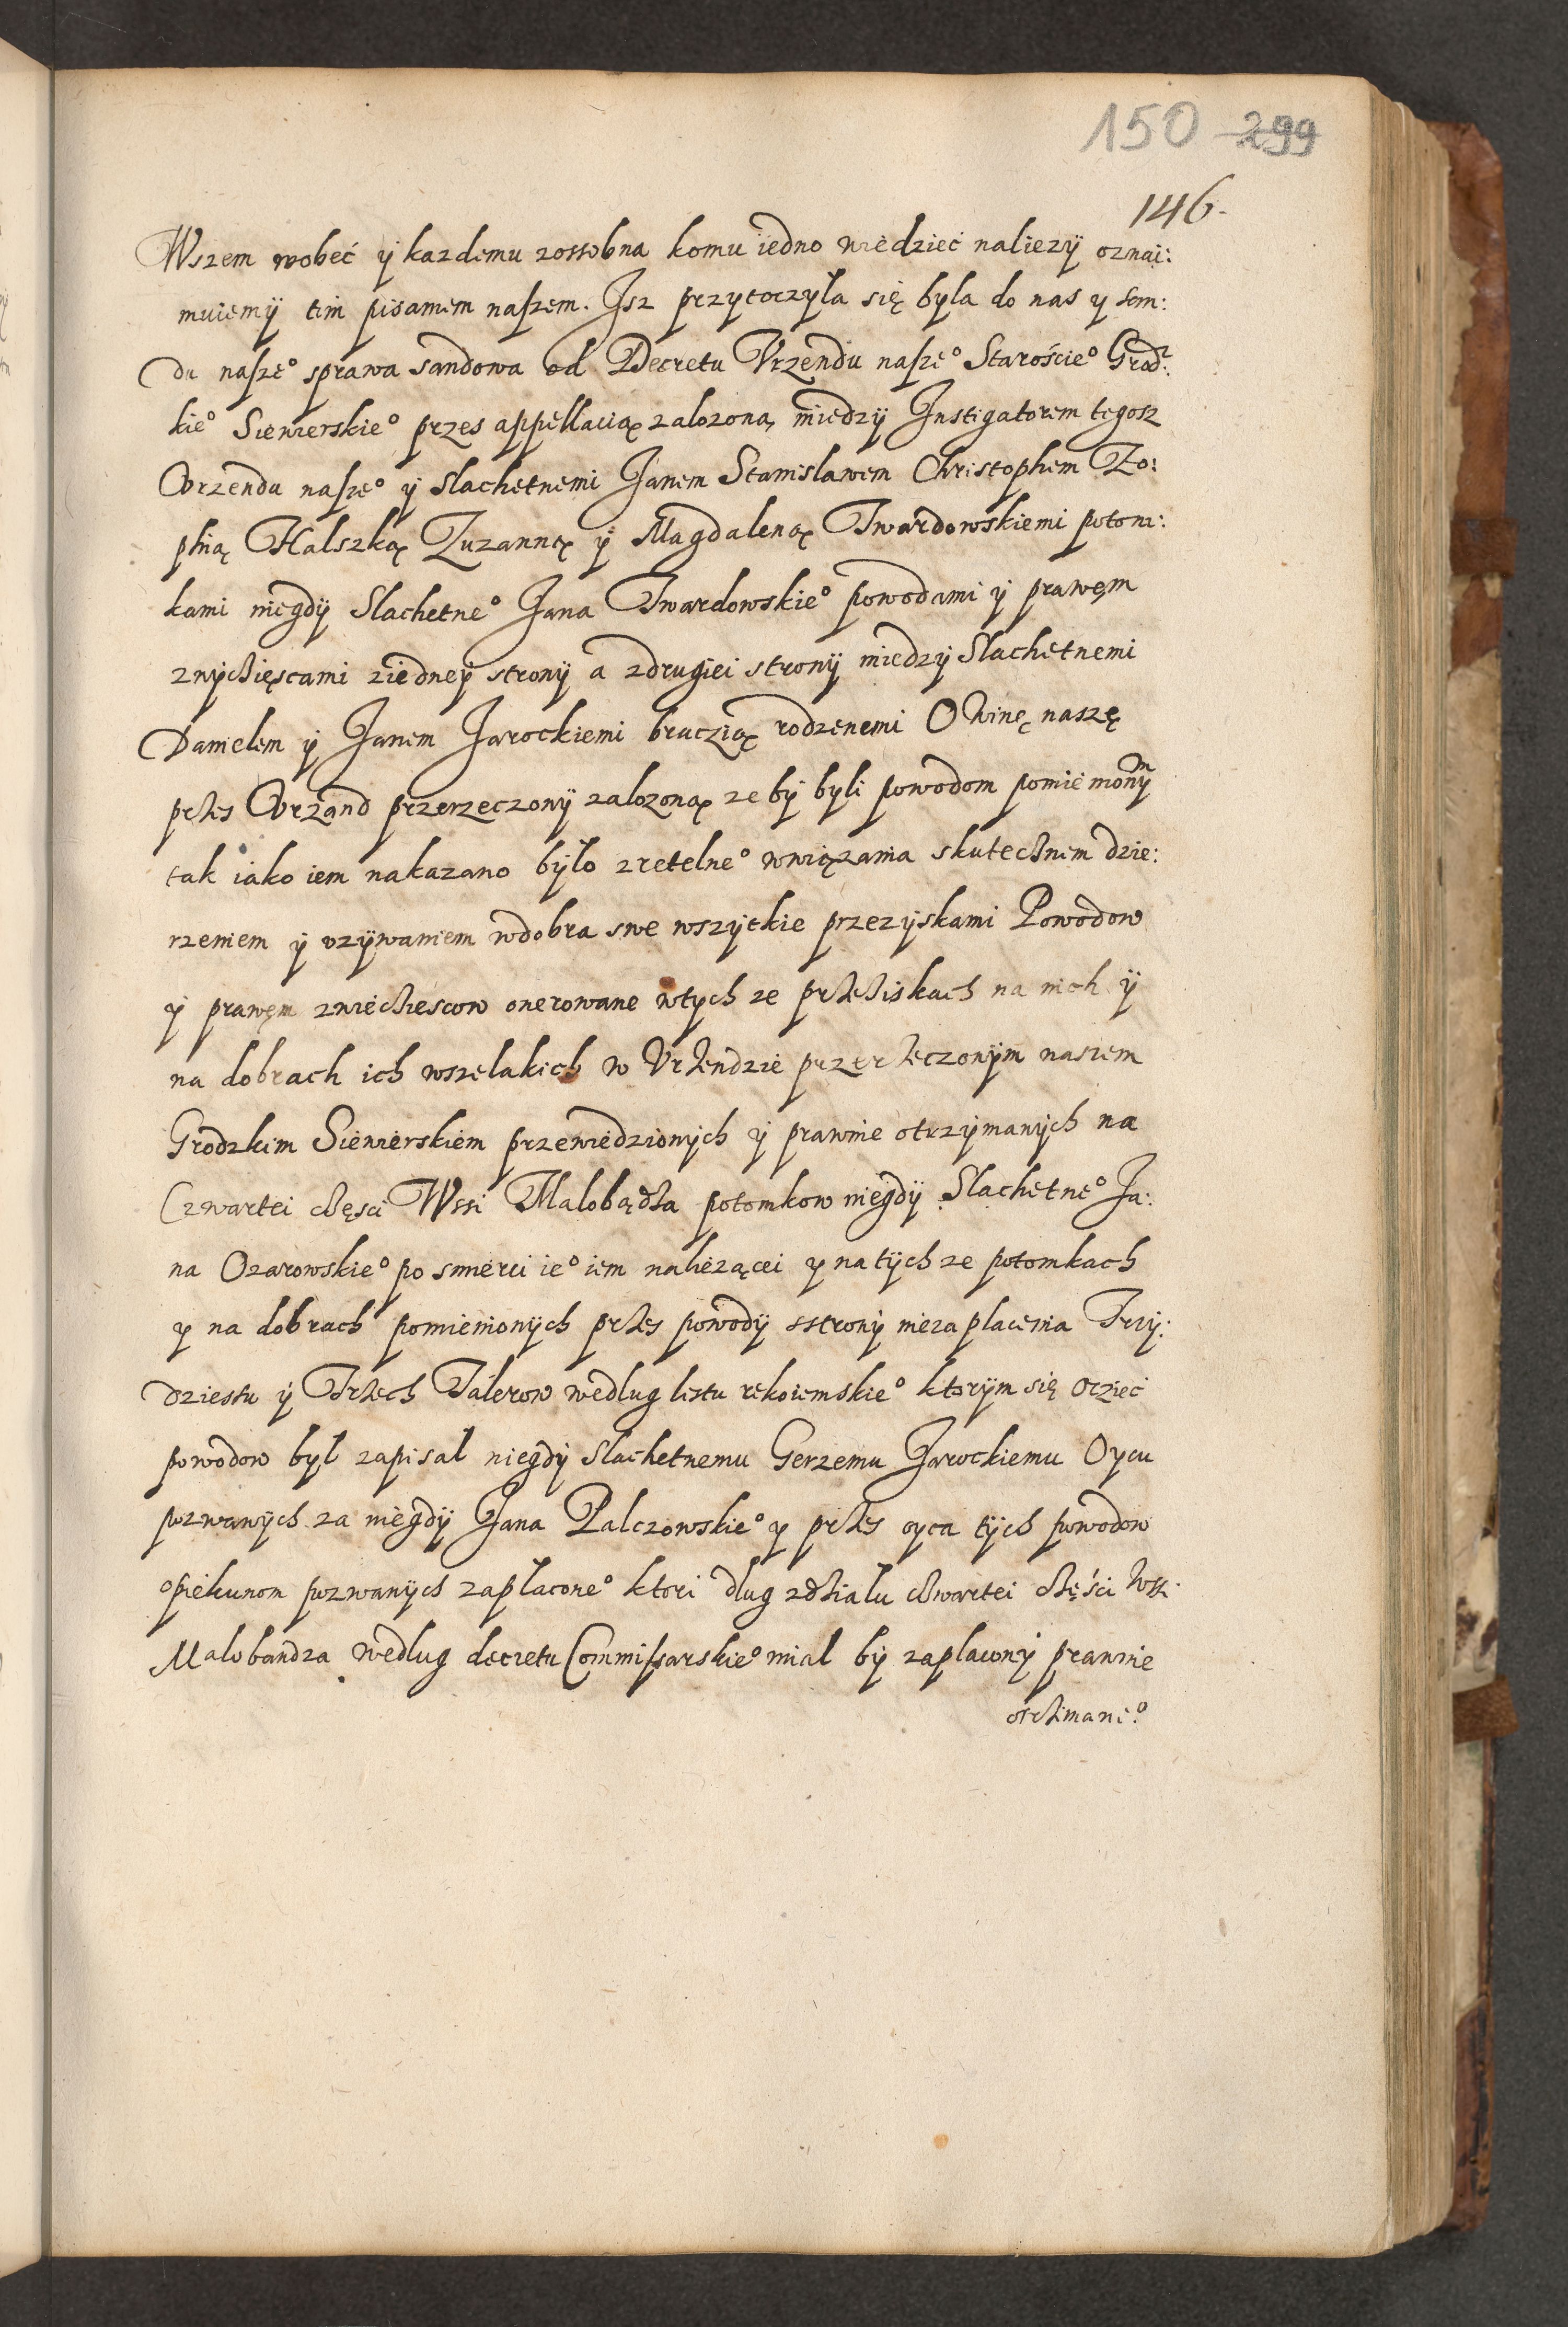 150 299
146.
Wszem wobeć ÿ kazdemu zossobna komu iedno wiedziec naliezÿ oznai:
muiemÿ tim pisaniem naszem. Jsz przytoczyla się byla do nas y sem:
du nasze⁰ sprawa sandowa od Decretu Vrzendu nasze⁰ Staroście⁰ Grodz:
kie⁰ Siewierskie⁰ przes appellacią zalozona, miedzÿ Jnstigatorem tegosz
Vrzendu nasze⁰ ÿ Slachetnemi Janem Stanislawem Christophem Zo:
phią Halszką Zuzanną ÿ Magdaleną Twardowskiemi potom:
kami niegdÿ Slachetne⁰ Jana Twardowskie⁰ powodami ÿ prawęm
zwÿchięscami ziedneÿ stronÿ a zdrugiei stronÿ miedzÿ Slachetnemi
Danielem ÿ Janem Jarockiemi braczią rodzenemi O winę naszę
przes Vrzand przerzeczonÿ zalozoną ze bÿ byli powodom pomienionÿm
tak iako iem nakazano bÿlo zretelne⁰ wwiązania skutecznem dzie:
rzeniem ÿ vzÿwaniem wdobra swe wszÿtkie przezÿskami Powodow
ÿ prawęm zwiechiescow onerowane wtych ze przeziskach na nich ÿ
na dobrach ich wszelakich w Vrzendzie przerzeczonÿm naszem
Grodzkim Siewierskiem przewiedzionÿch ÿ prawnie otrzÿmanÿch na
Czwartei częsci Wssi Malobądza potomkow niegdÿ Slachetne⁰ Ja:
na Ozarowskie⁰ po smierci ie⁰ iem naliezącei y na tÿch ze potomkach
y na dobrach pomienionÿch przes powodÿ sstronÿ niezaplacenia Trzÿ:
dziestu ÿ Trzech Talerow wedlug listu rekoiemskie⁰ ktorÿm się oczieć
powodow bÿl zapisal niegdÿ slachetnemu Gerzemu Jarockiemu Oycu
pozwanÿch za niegdÿ Jana Palczowskie⁰ y przes oyca tÿch powodow
opiekunom pozwanÿch zaplacone⁰ ktori dlug zdzialu czwartei części wssi
Malobandza wedlug decretu Commissarskie⁰ mial bÿ zaplaconÿ prawnie
otrzimane⁰